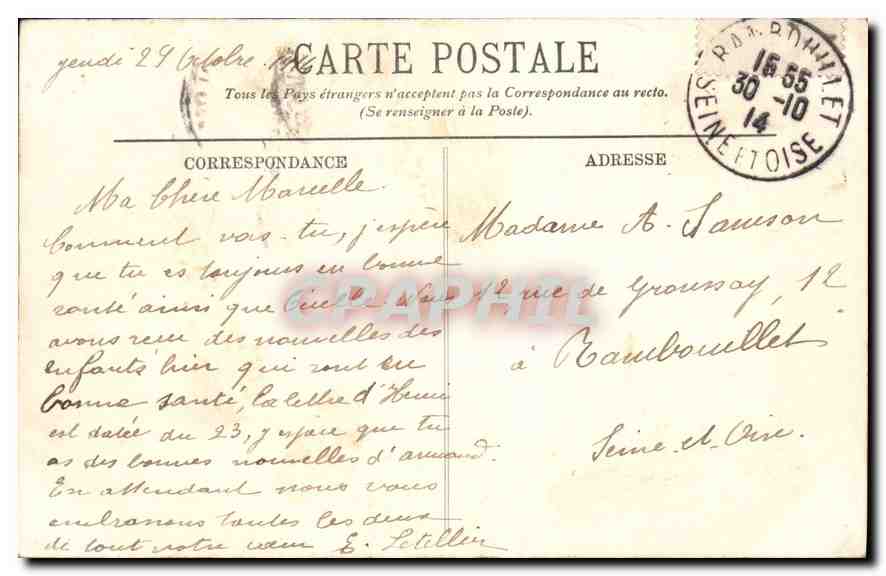 jeudi 29 Octobre 1914
CARTE POSTALE
Tous les Pays étrangers n'acceptent pas la Correspondance au recto.
(Se renseigner à la Poste).
RAMBOUILLET
15 55
30 -10
14
SEINE ET OISE
CORRESPONDANCE
Ma Chère Marcelle.
Comment vas-tu, j'espère
que tu es toujours en bonne
santé ainsi que Giselle. Nous
avons reçu des nouvelles des
enfants hier qui sont en
bonne santé, la lettre d'Henri
est datée du 23, j'espère que tu
as des bonnes nouvelles d'armand.
En attendant nous vous
embrassons toutes les deux
de tout notre cœur E. Letellier
ADRESSE
Madame A. Samson
12 rue de Groussay, 12
à Rambouillet
Seine-et-Oise.
DELCAMPE